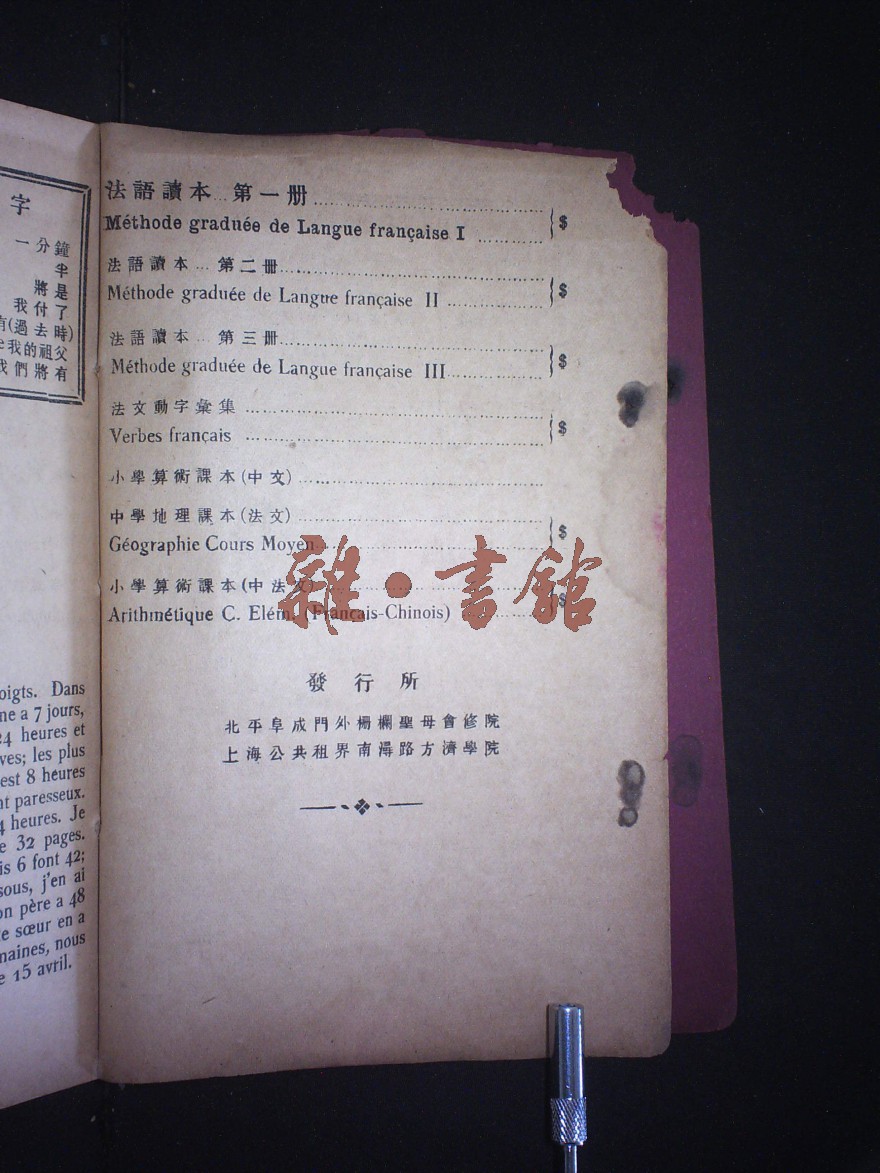 字
一分鐘
半
將是
我付了
有(過去時)
我的祖父
我們將有
oigts. Dans
ne a 7 jours,
24 heures et
ves; les plus
est 8 heures
nt paresseux.
4 heures. Je
e 32 pages.
is 6 font 42;
sous, j'en ai
on père a 48
e sœur en a
maines, nous
e 15 avril.
法語讀本...第一册
Méthode graduée de Langue française I $
法語讀本...第二册
Méthode graduée de Langue française II $
法語讀本...第三册
Méthode graduée de Langue française III $
法文動字彙集
Verbes français $
小學算術課本(中文)
中學地理課本(法文)
Géographie Cours Moyen $
小學算術課本(中法文)
Arithmétique C. Elém. (Français-Chinois) $
雜·書館
發行所
北平阜成門外柵欄聖母會修院
上海公共租界南潯路方濟學院